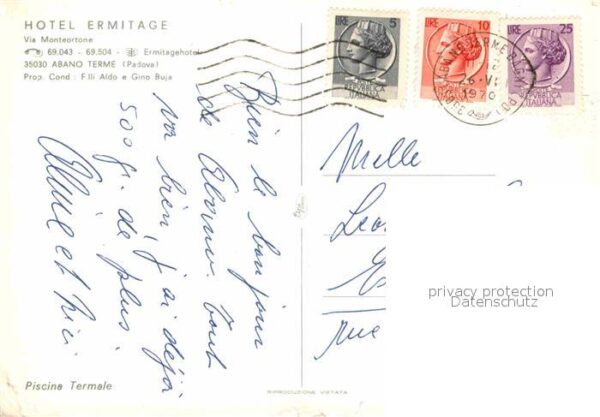 HOTEL ERMITAGE
Via Monteortone
69.043 - 69.504 - Ermitagehotel
35030 ABANO TERME (Padova)
Prop. Cond : F.lli Aldo e Gino Buja
LIRE 5
REPUBBLICA ITALIANA
LIRE 10
REPUBBLICA ITALIANA
LIRE 25
REPUBBLICA ITALIANA
1970
Bien le bonjour
de Abano. Tout
va bien, j'ai déjà
500 gr. de plus!
Melle
rue
privacy protection
Datenschutz
Piscina Termale
RIPRODUZIONE VIETATA